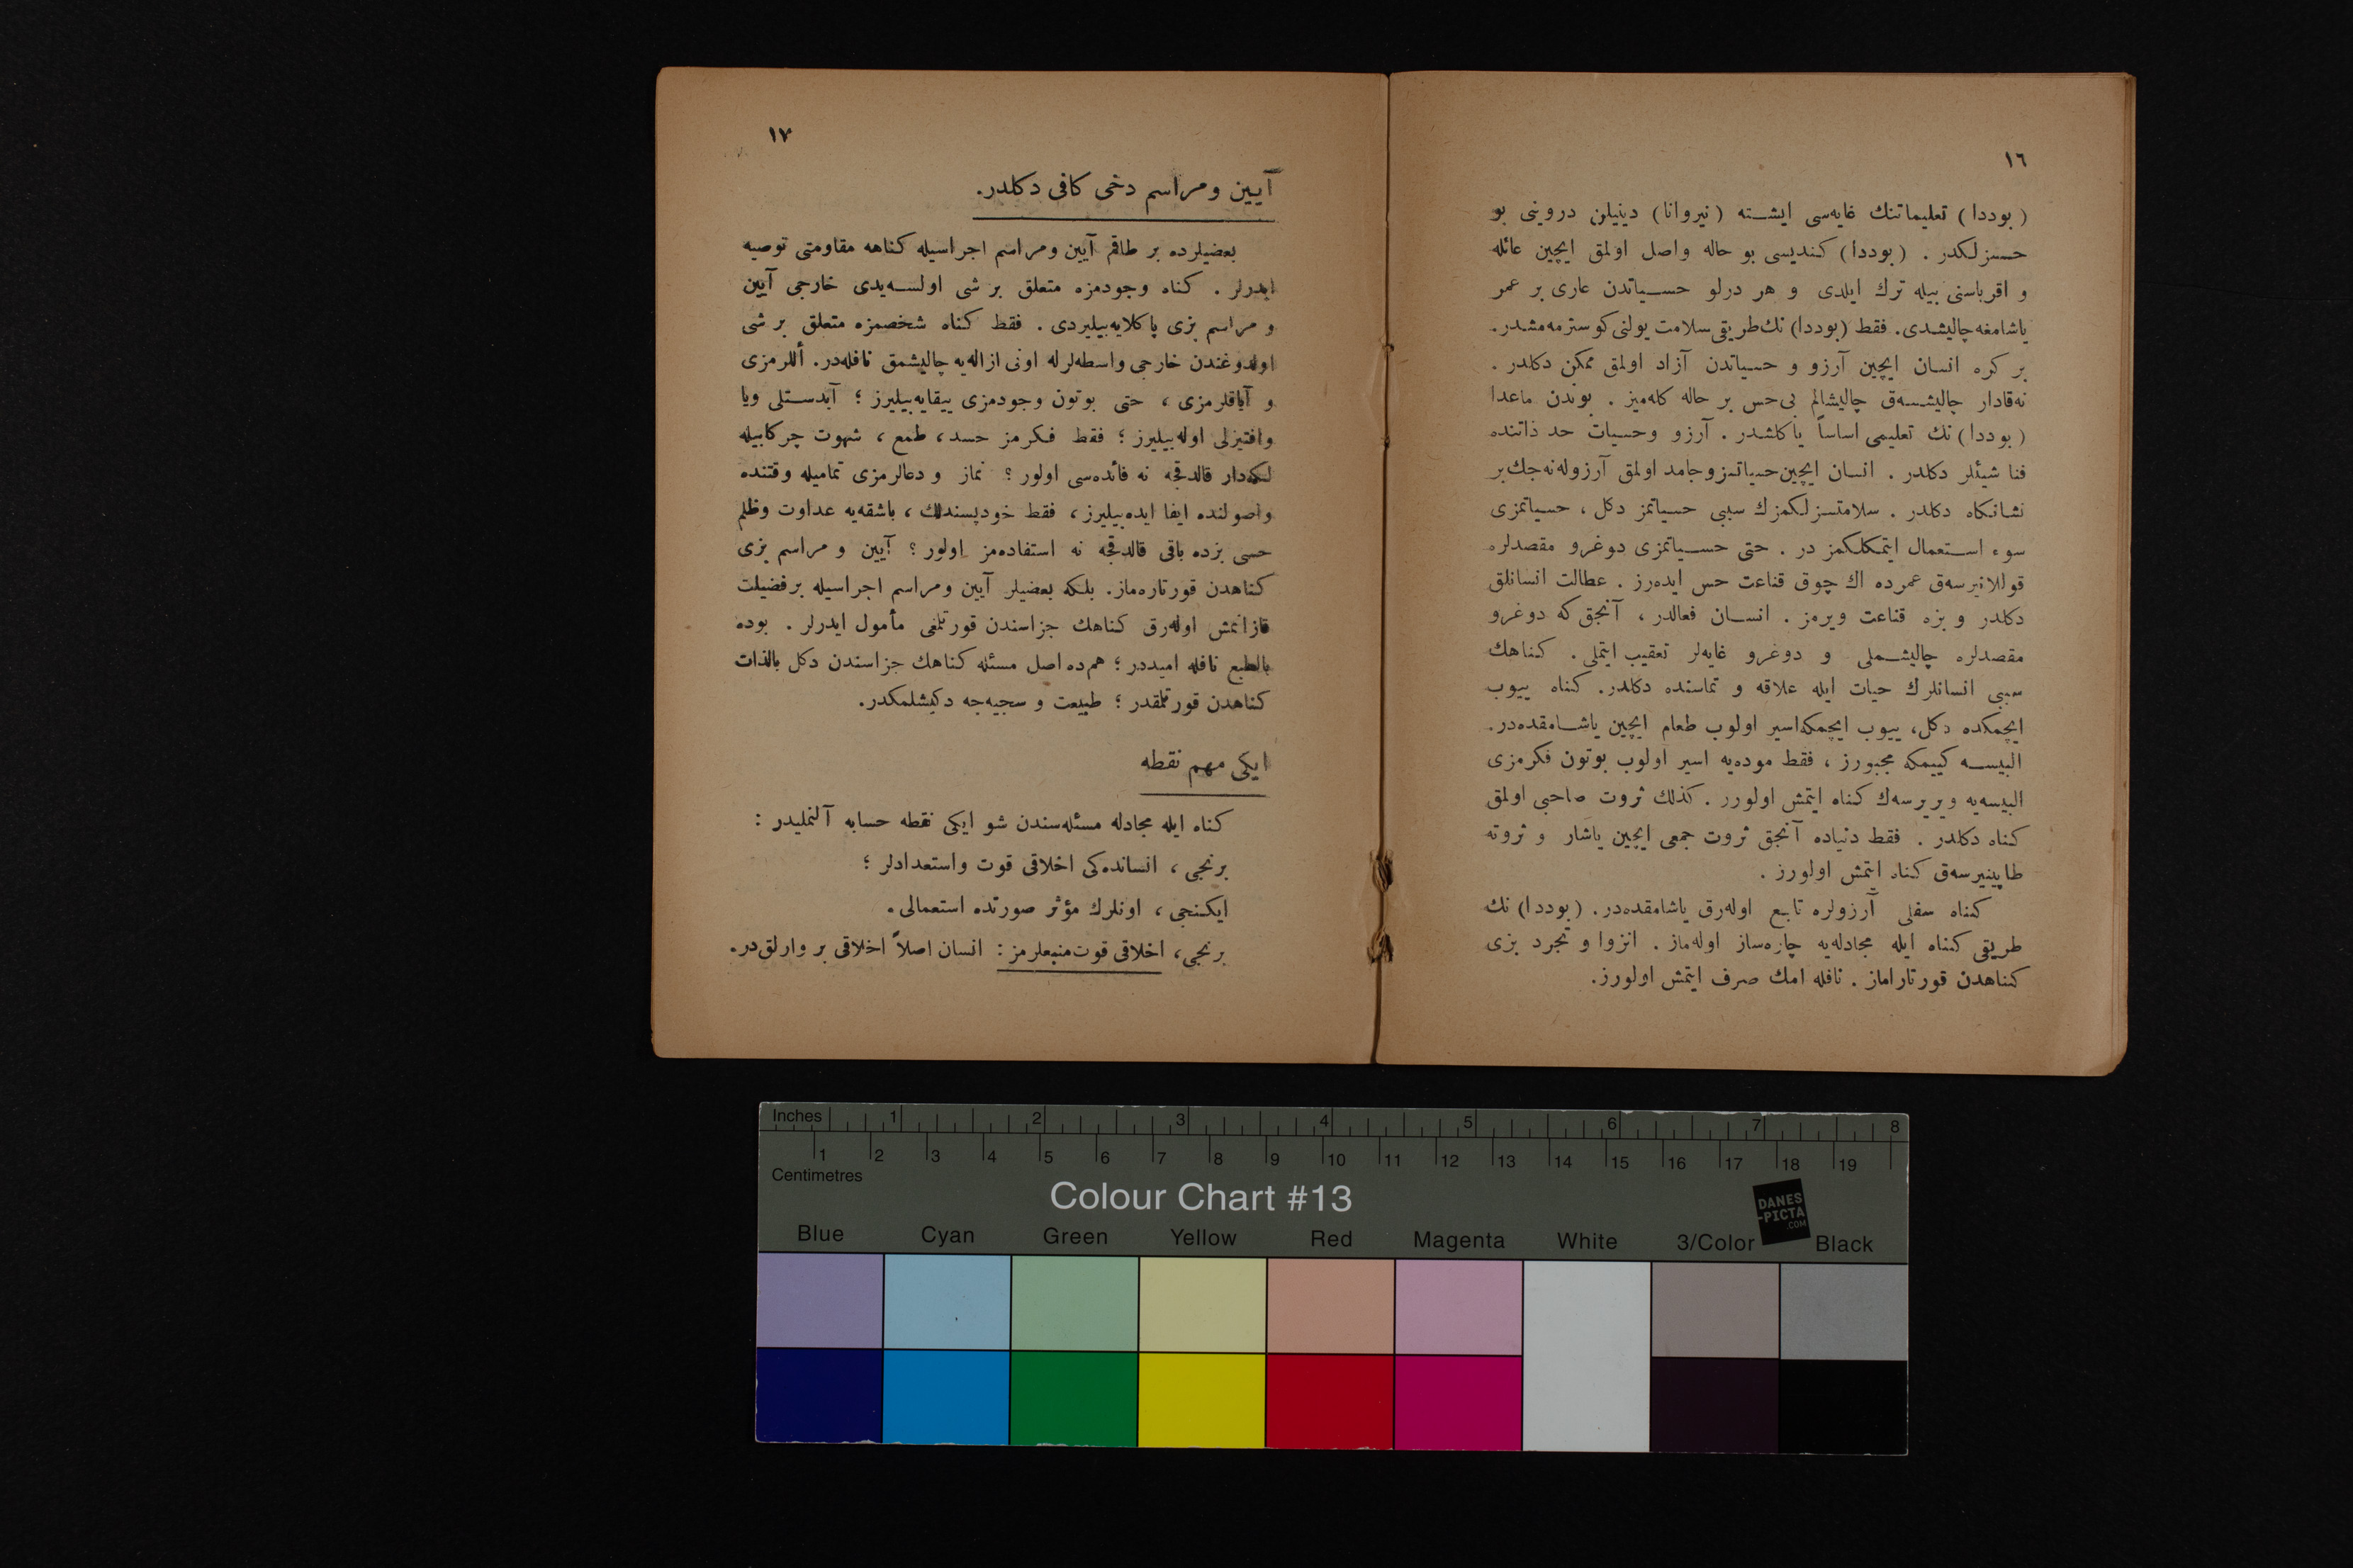 ١٦
(بوددا) تعلیماتنك غایه‌سی ایشته (نیروانا) دینیلن درونی بو
حسسزلكدر . (بوددا) كندیسی بو حاله واصل اولمق ایچین عائله
و اقرباسنی بیله ترك ایلدی و هر درلو حسیاتدن عاری بر عمر
یاشامغه چالیشدی. فقط (بوددا) نك طریقی سلامت یولنی كوسترمه‌مشدر.
بر كره انسان ایچین آرزو و حسیاتدن آزاد اولمق ممكن دكلدر .
نه‌قادار چالیشسه‌ق چالیشالم بی‌حس بر حاله كله‌میز . بوندن ماعدا
(بوددا) نك تعلیمی اساساً یاكلشدر . آرزو وحسیات حد ذاتنده
فنا شیئلر دكلدر . انسان ایچین حسیاتمز وجامد اولمق آرزوله‌نه‌جك بر
نشانكاه دكلدر . سلامتسزلكمزك سببی حسیاتمز دكل ، حسیاتمزی
سوء استعمال ایتمكلكمز در . حتی حسیاتمزی دوغرو مقصدلره
قوللانیرسه‌ق عمرده اك چوق قناعت حس ایده‌رز . عطالت انسانلق
دكلدر و بزه قناعت ویرمز . انسان فعالدر ، آنجق كه دوغرو
مقصدلره چالیشملی و دوغرو غایه‌لر تعقیب ایتملی . كناهك
سببی انسانلرك حیات ایله علاقه و تماسنده دكلدر. كناه ییوب
ایچمكده دكل، ییوب ایچمكه اسیر اولوب طعام ایچین یاشامقده‌در.
البیسه كییمكه مجبورز ، فقط موده‌یه اسیر اولوب بوتون فكرمزی
البیسه‌یه ویریرسه‌ك كناه ایتمش اولورز . كذلك ثروت صاحبی اولمق
كناه دكلدر . فقط دنیاده آنجق ثروت جمعی ایچین یاشار و ثروته
طاپینیرسه‌ق كناه ایتمش اولورز .
كناه سفلی آرزولره تابع اوله‌رق یاشامقده‌در. (بوددا) نك
طریقی كناه ایله مجادله‌یه چاره‌ساز اوله‌ماز . انزوا و تجرد بزی
كناهدن قورتاراماز . نافله امك صرف ایتمش اولورز.
١٧
آیین ومراسم دخی كافی دكلدر.
بعضیلرده بر طاقم آیین ومراسم اجراسیله كناهه مقاومتی توصیه
ایدرلر . كناه وجودمزه متعلق بر شی اولسه‌یدی خارجی آیین
و مراسم بزی پاكلایه‌بیلیردی . فقط كناه شخصمزه متعلق بر شی
اولدوغندن خارجی واسطه‌لرله اونی ازاله‌یه چالیشمق نافله‌در. أللرمزی
و آیاقلرمزی ، حتی بوتون وجودمزی ییقایه‌بیلیرز ؛ آبدستلی ویا
وافتیزلی اوله‌بیلیرز ؛ فقط فكرمز حسد، طمع ، شهوت چركابیله
لكه‌دار قالدقجه نه فائده‌سی اولور ؟ نماز و دعالرمزی تمامیله وقتنده
واصولنده ایفا ایده‌بیلیرز ، فقط خودپسندلك ، باشقه‌یه عداوت وظلم
حسی بزده باقی قالدقجه نه استفاده‌مز اولور ؟ آیین و مراسم بزی
كناهدن قورتاره‌ماز. بلكه بعضیلر آیین ومراسم اجراسیله برفضیلت
قازانمش اوله‌رق كناهك جزاسندن قورتلغی مأمول ایدرلر . بوده
بالطبع نافله امیددر ؛ هم‌ده اصل مسئله كناهك جزاسندن دكل بالذات
كناهدن قورتلقدر ؛ طبیعت و سجیه‌جه دكیشلمكدر.
ایكی مهم نقطه
كناه ایله مجادله مسئله‌سندن شو ایكی نقطه حسابه آلنملیدر :
برنجی ، انسانده‌كی اخلاقی قوت واستعدادلر ؛
ایكنجی ، اونلرك مؤثر صورتده استعمالی.
برنجی، اخلاقی قوت‌منبعلرمز : انسان اصلاً اخلاقی بر وارلق‌در.
Inches 1 2 3 4 5 6 7 8
1 2 3 4 5 6 7 8 9 10 11 12 13 14 15 16 17 18 19
Centimetres
Colour Chart #13
DANES
-PICTA
.COM
Blue Cyan Green Yellow Red Magenta White 3/Color Black